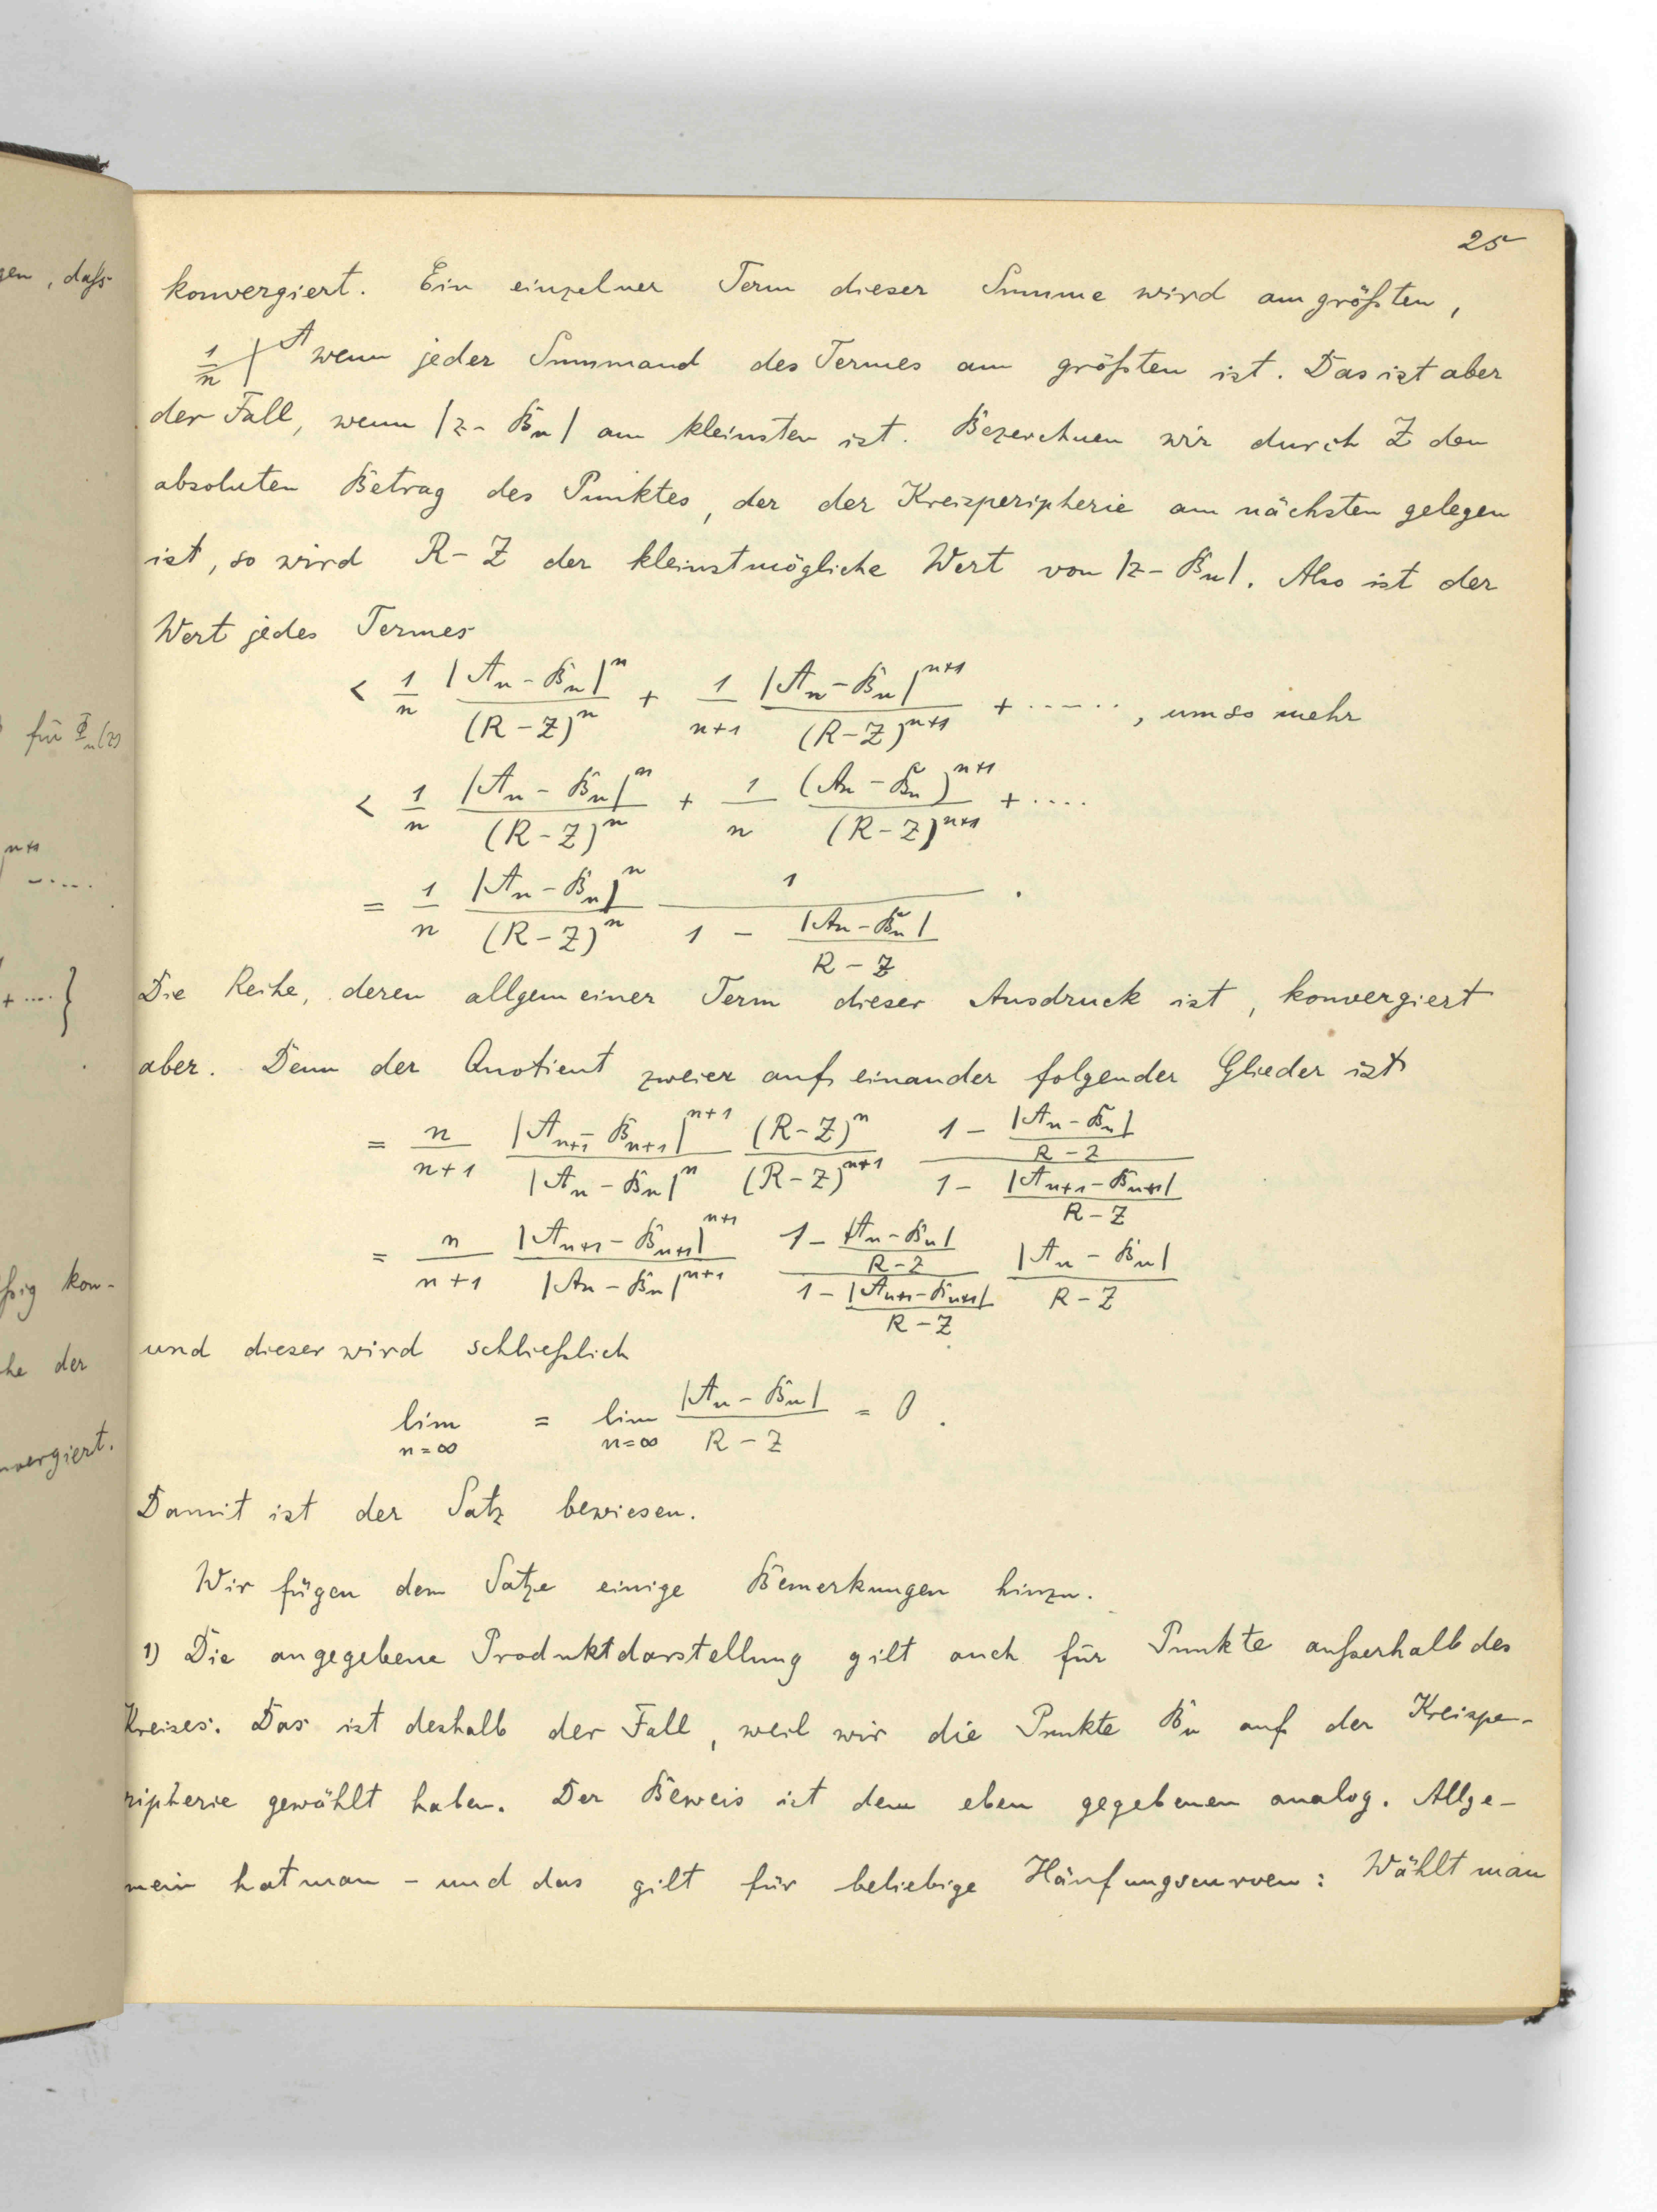 25
gen, dafs
konvergiert. Ein einzelner Term dieser Summe wird am größten,
wenn jeder Summand des Termes am größten ist. Das ist aber
der Fall, wenn |z - B_n| am kleinsten ist. Bezeichnen wir durch Z den
absoluten Betrag des Punktes, der der Kreisperipherie am nächsten gelegen
ist, so wird R - Z der kleinstmögliche Wert von |z - B_n|. Also ist der
Wert jedes Termes
< \frac{1}{n} \frac{|A_n - B_n|^n}{(R - Z)^n} + \frac{1}{n+1} \frac{|A_n - B_n|^{n+1}}{(R - Z)^{n+1}} + ......, umso mehr
für Φ_n(z)
< \frac{1}{n} \frac{|A_n - B_n|^n}{(R - Z)^n} + \frac{1}{n} \frac{(A_n - B_n)^{n+1}}{(R - Z)^{n+1}} + ....
n+1
= \frac{1}{n} \frac{|A_n - B_n|^n}{(R - Z)^n} \frac{1}{1 - \frac{|A_n - B_n|}{R - Z}} .
+ .... }
Die Reihe, deren allgemeiner Term dieser Ausdruck ist, konvergiert
aber. Denn der Quotient zweier auf einander folgender Glieder ist
= \frac{n}{n+1} \frac{|A_{n+1} - B_{n+1}|^{n+1}}{|A_n - B_n|^n} \frac{(R - Z)^n}{(R - Z)^{n+1}} \frac{1 - \frac{|A_n - B_n|}{R - Z}}{1 - \frac{|A_{n+1} - B_{n+1}|}{R - Z}}
= \frac{n}{n+1} \frac{|A_{n+1} - B_{n+1}|^{n+1}}{|A_n - B_n|^{n+1}} \frac{1 - \frac{|A_n - B_n|}{R - Z}}{1 - \frac{|A_{n+1} - B_{n+1}|}{R - Z}} \frac{|A_n - B_n|}{R - Z}
ßig kon-
und dieser wird schließlich
he der
lim_{n=∞} = lim_{n=∞} \frac{|A_n - B_n|}{R - Z} = 0 .
nvergiert.
Damit ist der Satz bewiesen.
Wir fügen dem Satze einige Bemerkungen hinzu.
1) Die angegebene Produktdarstellung gilt auch für Punkte außerhalb des
Kreises. Das ist deshalb der Fall, weil wir die Punkte B_n auf der Kreispe-
ripherie gewählt haben. Der Beweis ist dem eben gegebenen analog. Allge-
mein hat man - und das gilt für beliebige Häufungscurven: Wählt man